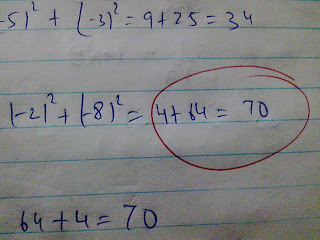 -5)² + (-3)² = 9+25 = 34
(-2)² + (-8)² = 4+64 = 70
64+4 = 70